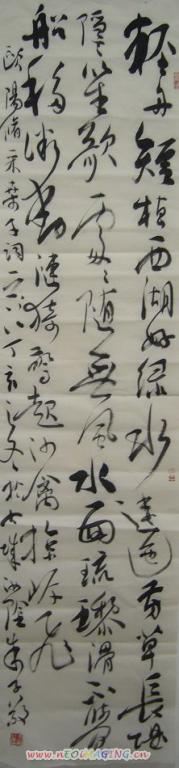 轻舟短棹西湖好绿水逶迤芳草长堤
隐隐笙歌处处随无风水面琉璃滑不觉
船移微动涟漪惊起沙禽掠岸飞
欧阳修采桑子词 丁亥之冬于 城汝阴
www.nEOIMAGING.cn